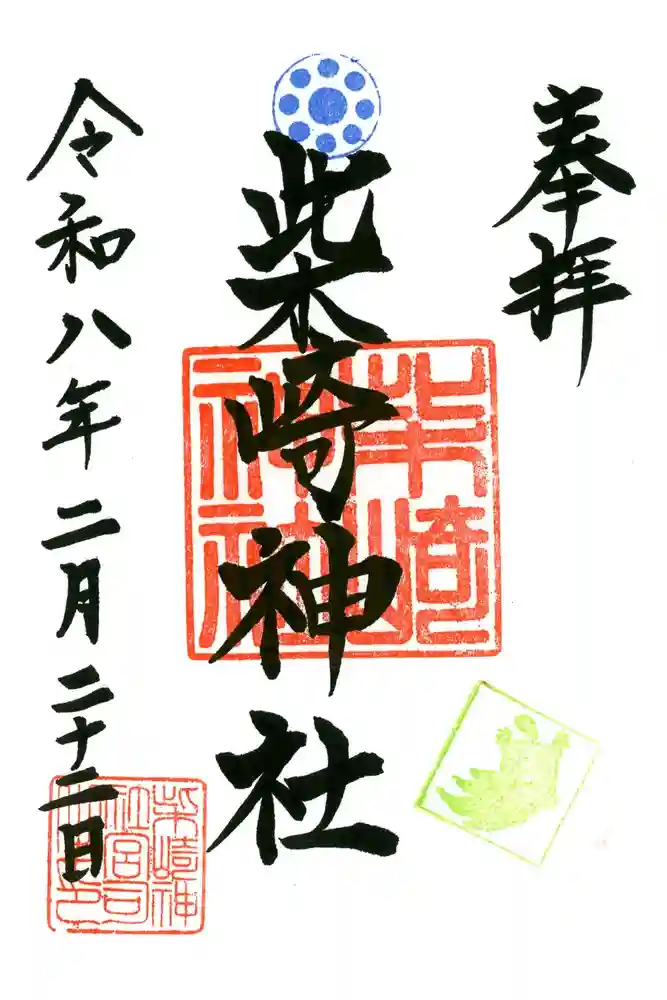 奉拝
柴崎神社
令和八年二月二十二日
柴崎
神社
柴崎神
社宮司